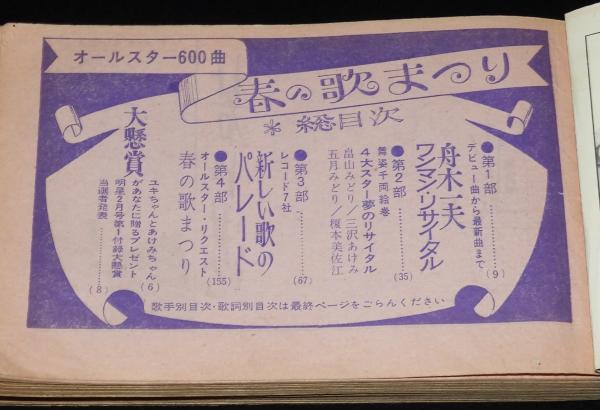 オールスター600曲
春の歌まつり
＊総目次
●第1部
デビュー曲から最新曲まで
舟木一夫
ワンマン・リサイタル
(9)
●第2部
舞姿千両絵巻
4大スター夢のリサイタル
畠山みどり／三沢あけみ
五月みどり／榎本美佐江
(35)
●第3部
レコード7社
新しい歌の
パレード
(67)
●第4部
オールスター・リクエスト
春の歌まつり
(155)
大懸賞
ユキちゃんとあけみちゃん
があなたに贈るプレゼント(6)
明星2月号第1付録大懸賞
当選者発表…………(8)
歌手別目次・歌詞別目次は最終ページをごらんください